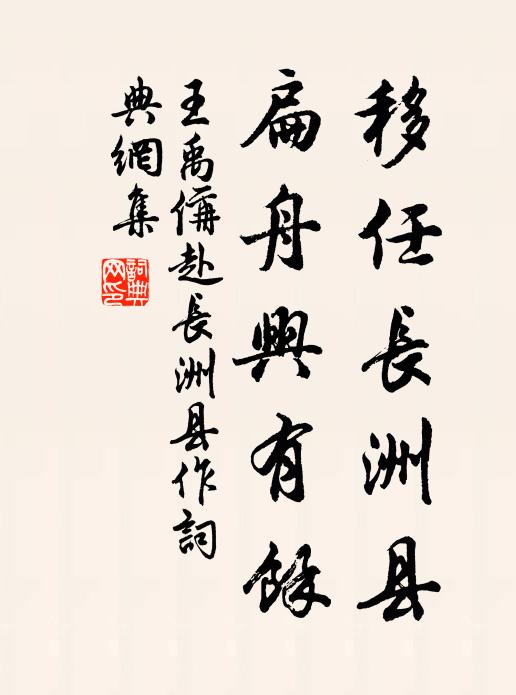 移任長洲县
扁舟興有餘
王禹偁赴長洲县作詞
典網集
詞典
网印